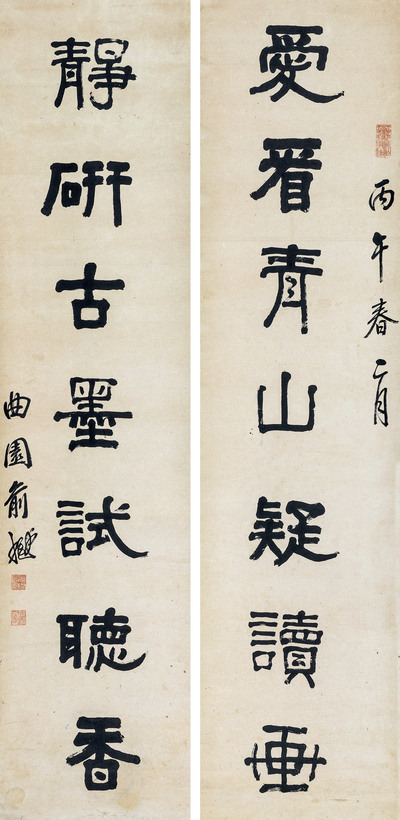 丙午春二月
愛看青山疑讀畫
靜研古墨試聽香
曲園俞樾